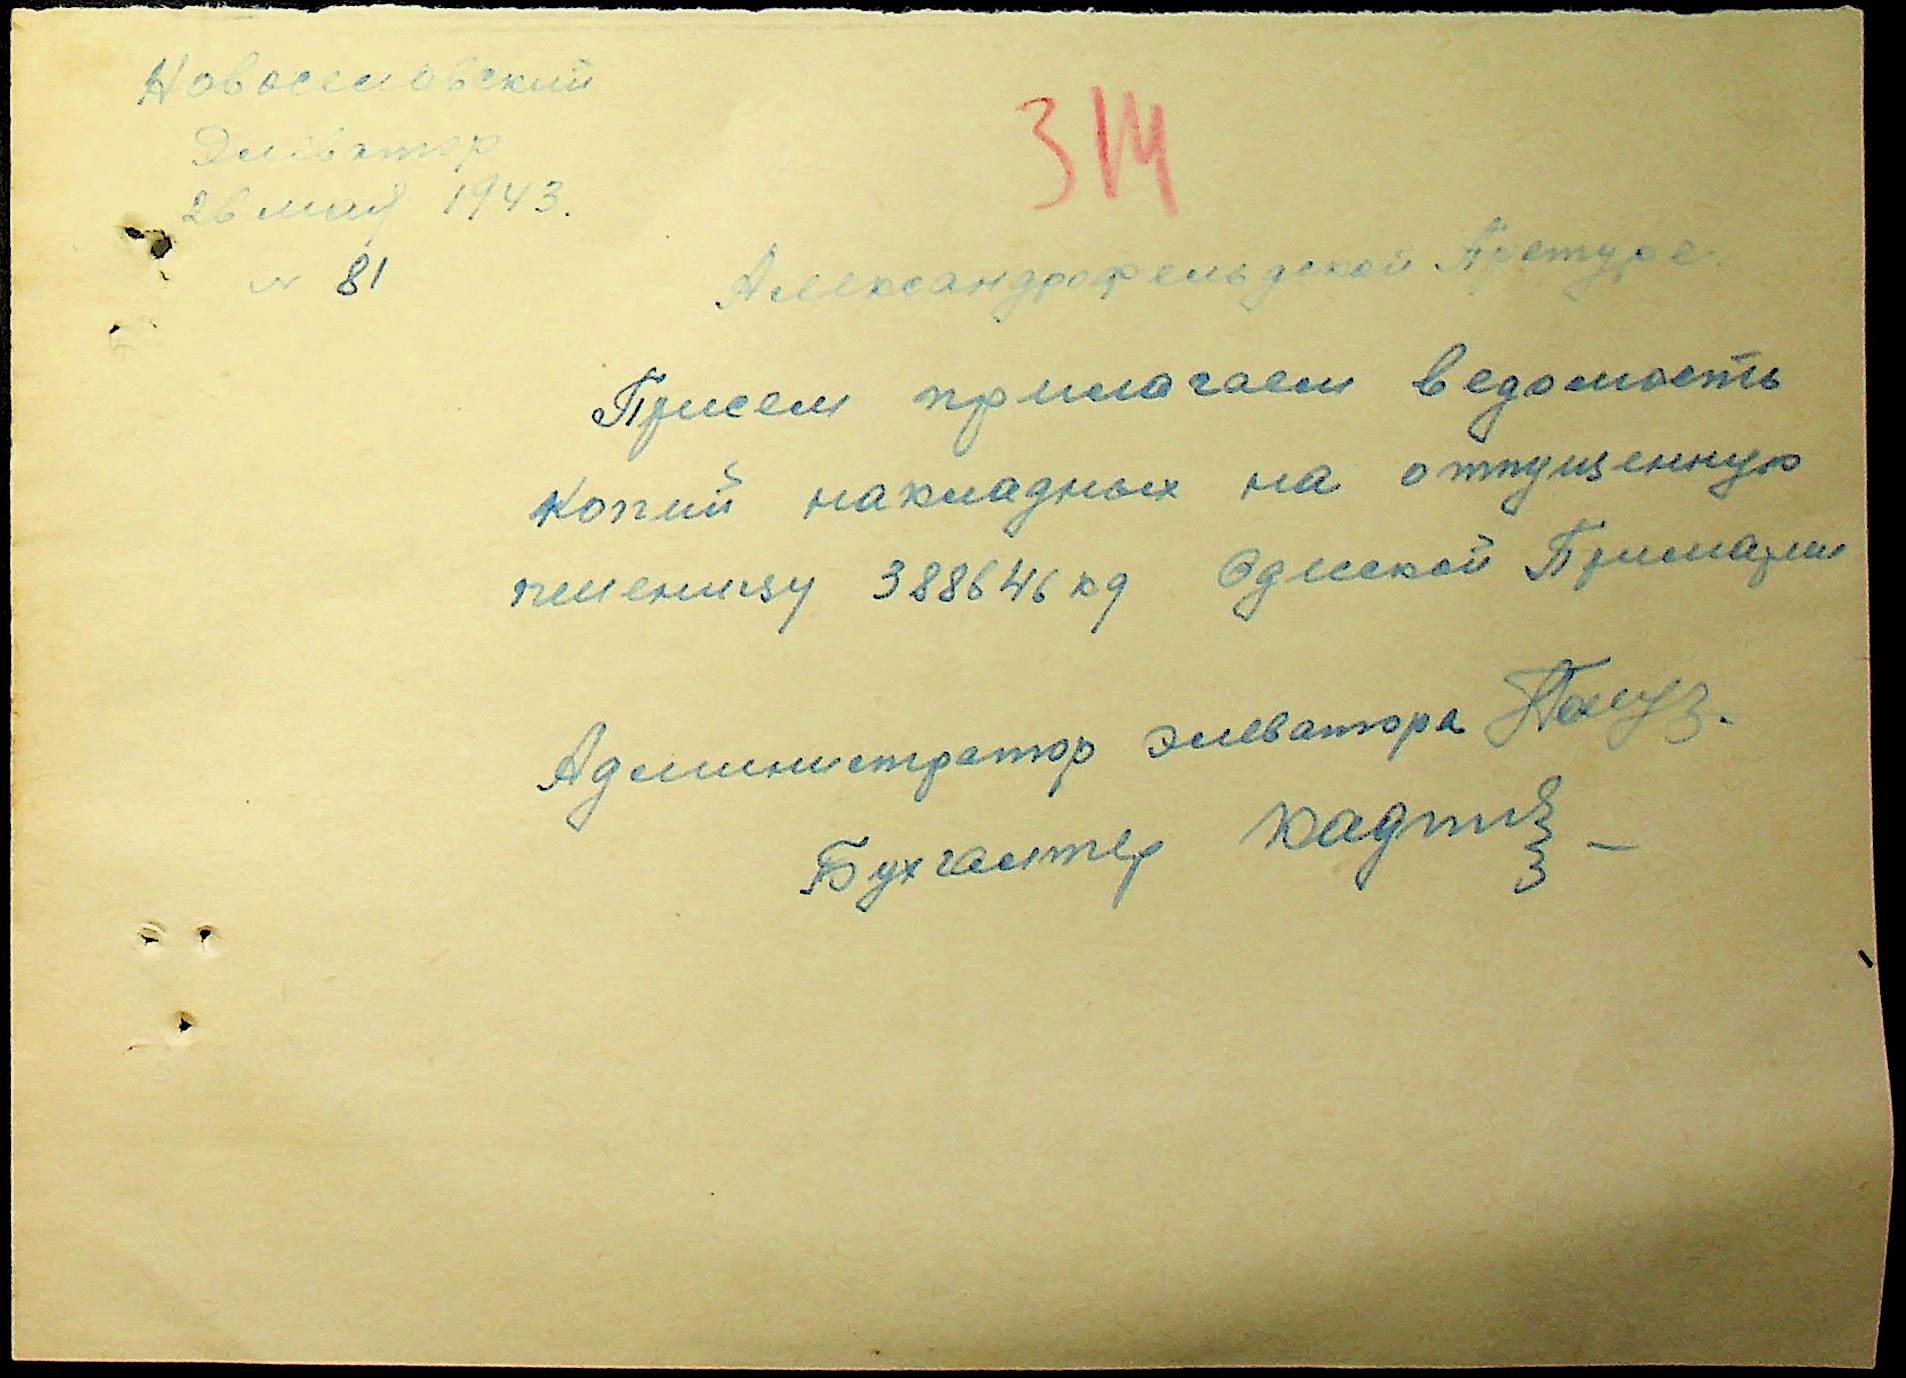 Новоселовский
Элеватор
26 мая 1943.
№ 81
314
Александрофельдской Претуре.
Присем прилагаем ведомость
копий накладных на отпущенную
пшеницу 388646 кг Одесской Примарии
Администратор элеватора
Бухгалтер